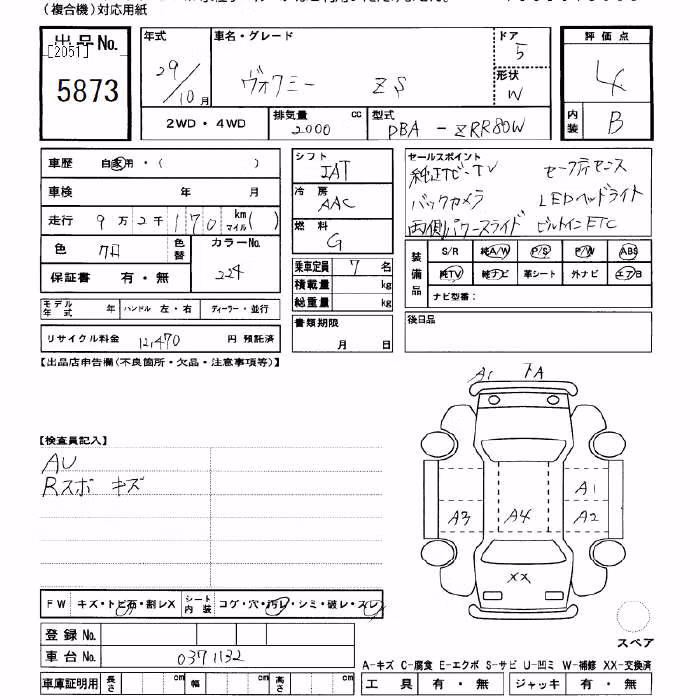 (複合機)対応用紙
出品No.
[2051]
5873
年式
29/10月
車名・グレード
ヴォクシー ZS
ドア
5
形状
W
2WD・4WD
排気量
2000 cc
型式
DBA-ZRR80W
評価点
4
内装
B
車歴 自家用・( )
車検 年 月
走行 9万2千170 km マイル( )
色
色替
カラーNo.
224
保証書 有・無
モデル年式 年 ハンドル 左・右 ディーラー・並行
リサイクル料金 12,470 円 預託済
シフト
IAT
冷房
AAC
燃料
G
乗車定員 7 名
積載量 kg
総重量 kg
書類期限
月 日
セールスポイント
純正ナビ・TV セーフティセンス
バックカメラ LEDヘッドライト
両側パワースライド ビルトインETC
装備品
S/R 純A/W P/S P/W ABS
純TV 純ナビ 革シート 外ナビ エアB
ナビ型番:
後日品
【出品店申告欄(不良箇所・欠品・注意事項等)】
A1 下A
【検査員記入】
AU
Rスポ キズ
A1
A3 A4 A2
XX
FW キズ・トビ石・割レX
シート内装 コゲ・穴・汚レ・シミ・破レ・スレ
スペア
登録No.
車台No. 0371132
車庫証明用 長さ cm 幅 cm 高さ cm
A-キズ C-腐食 E-エクボ S-サビ U-凹ミ W-補修 XX-交換済
工具 有・無 ジャッキ 有・無